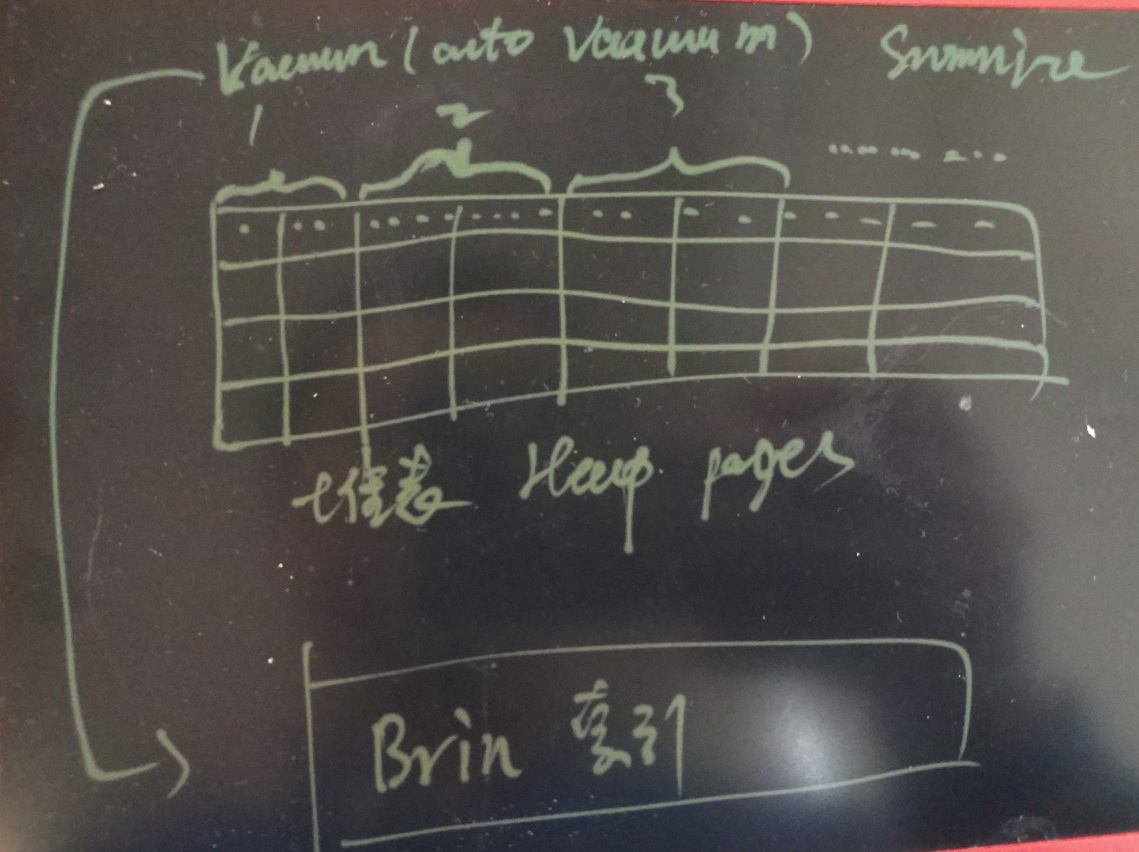 Vacuum (auto Vacuum) Summize
1 2 3
堆表 Heap pages
Brin 索引